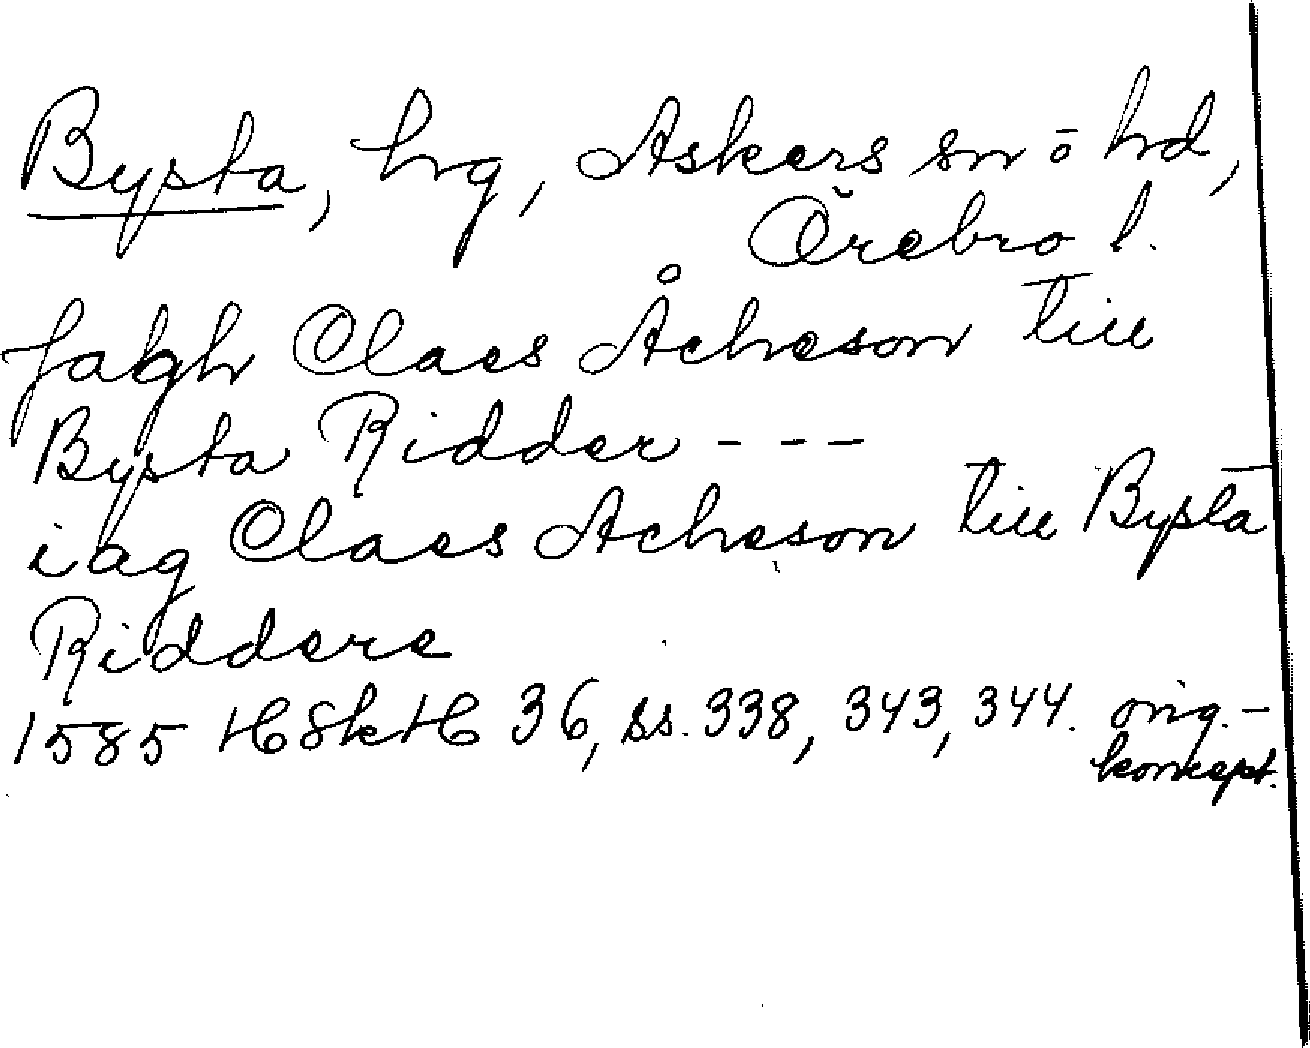 Bysta, hrg, Askers sn o hd,
Örebro l.
Jabgh Claes Åcheson till
Bysta Ridder - - -
iag Claes Acheson till Bysta
Riddere
1585 HSkH 36, ss. 338, 343, 344. orig.-
koncept.